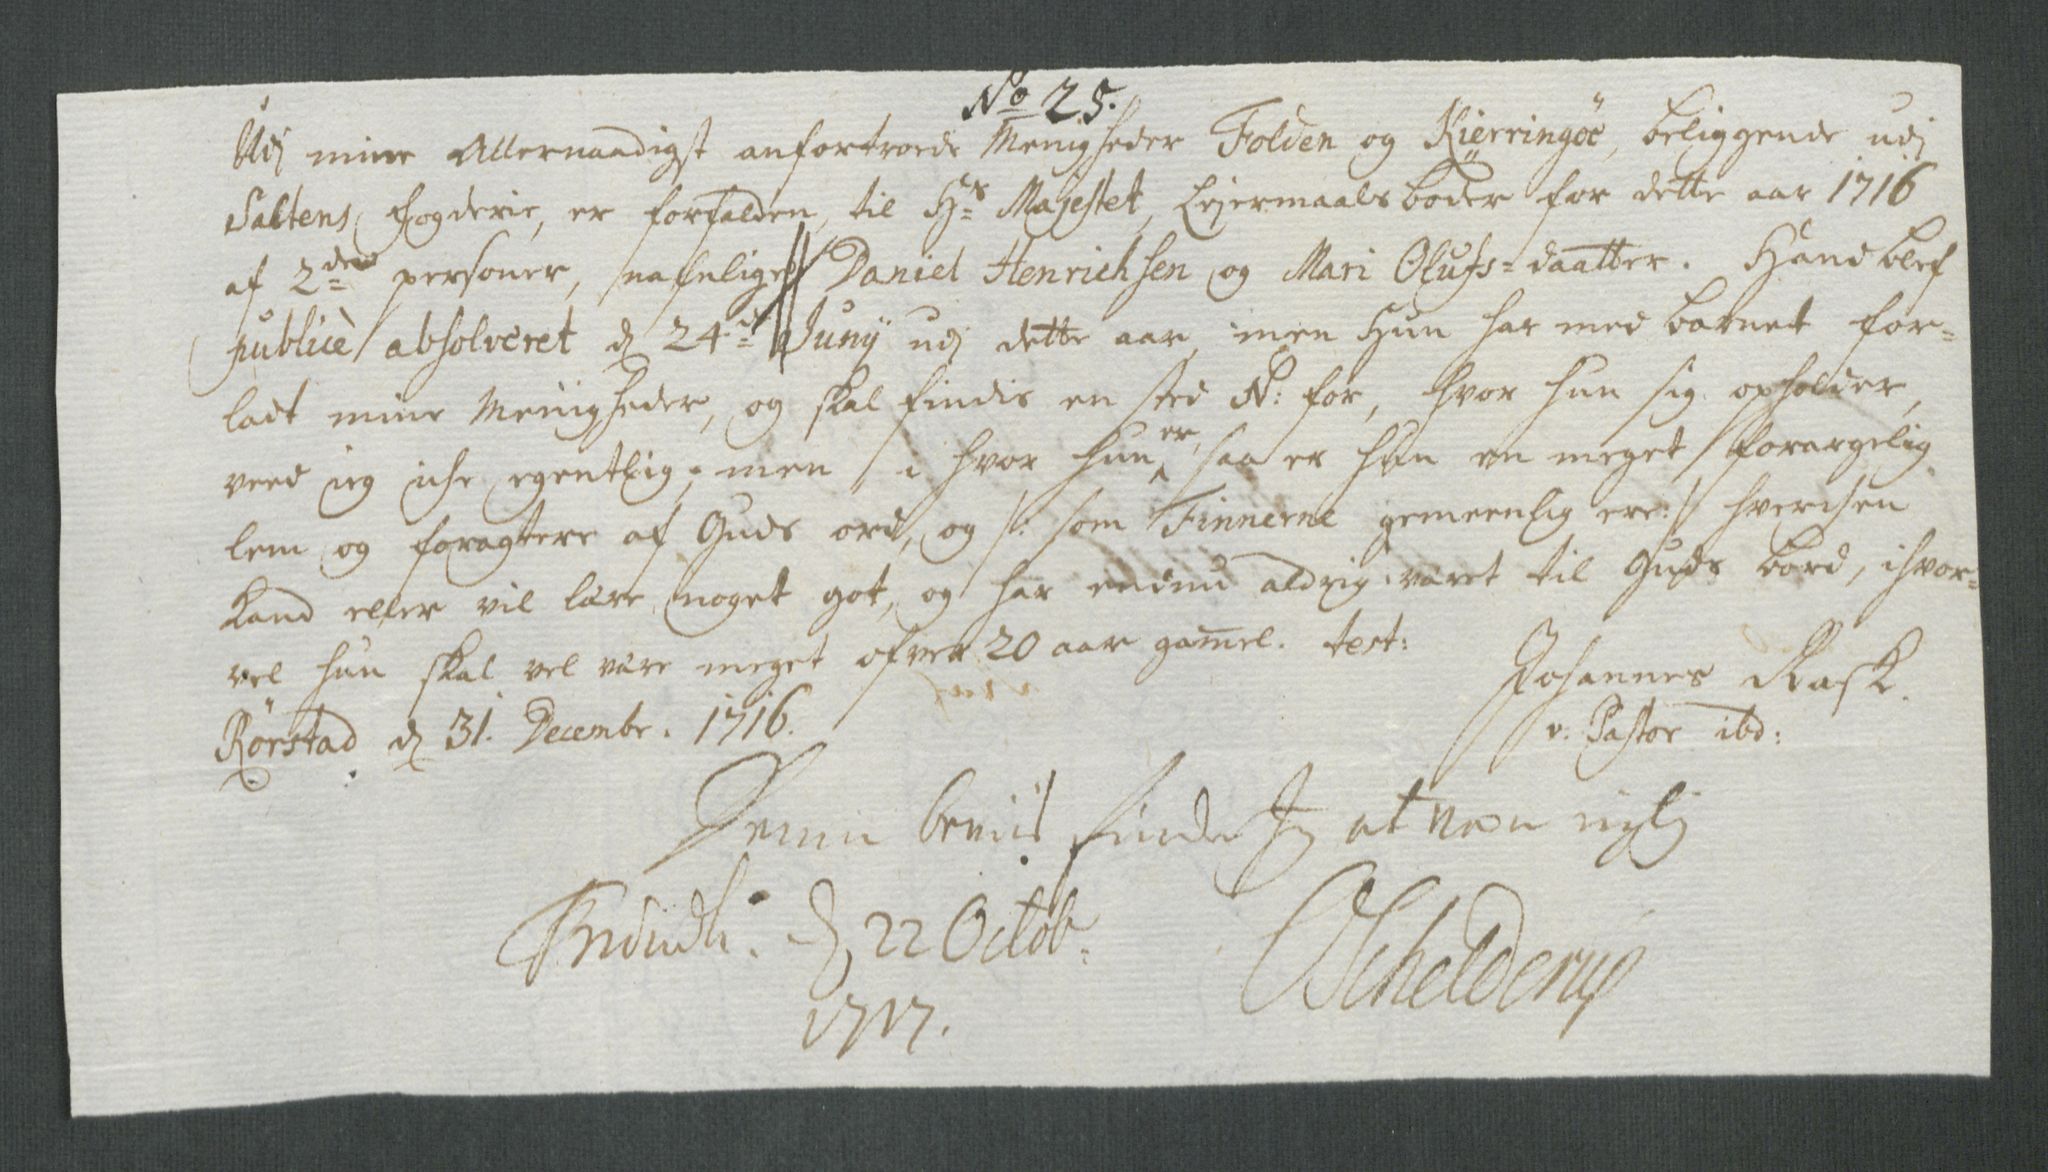 No 25.
Udj mine Allernaadigst anfortroede Menigheder Folden og Kierringöe, beliggende udj
Saltens Fogderie, er forfalden, til Hs Majestet, Lejermaals bøder for dette aar 1716
af 2de personer, nafnlige Daniel Henrichsen og Mari Olufs-daatter. Hand blef
publicè absolveret d 24 Junij udj dette aar, men Hun har med barnet for-
ladt mine Menigheder, og skal findis en sted N: for, hvor hun sig opholder,
veed ieg iche egentlig; men i hvor hun er, saa er hun en meget forargelig
lem og foragtere af Guds ord, og /: som Finnerne gemeenlig ere:/ hverchen
kand eller vil lære noget got, og har endnu aldrig været til Guds bord, ihvor-
vel hun skal vel være meget ofver 20 aar gamel. test:
Johannes Rask.
Rørstad d 31. Decembr. 1716.
v. Pastor ibd:
Denne beviis finder Jeg at være
d 22 Octob:
1717.
Schelderup